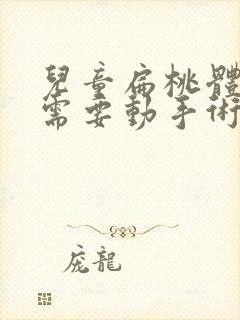 兒童扁桃體
需要動手術
庞龍